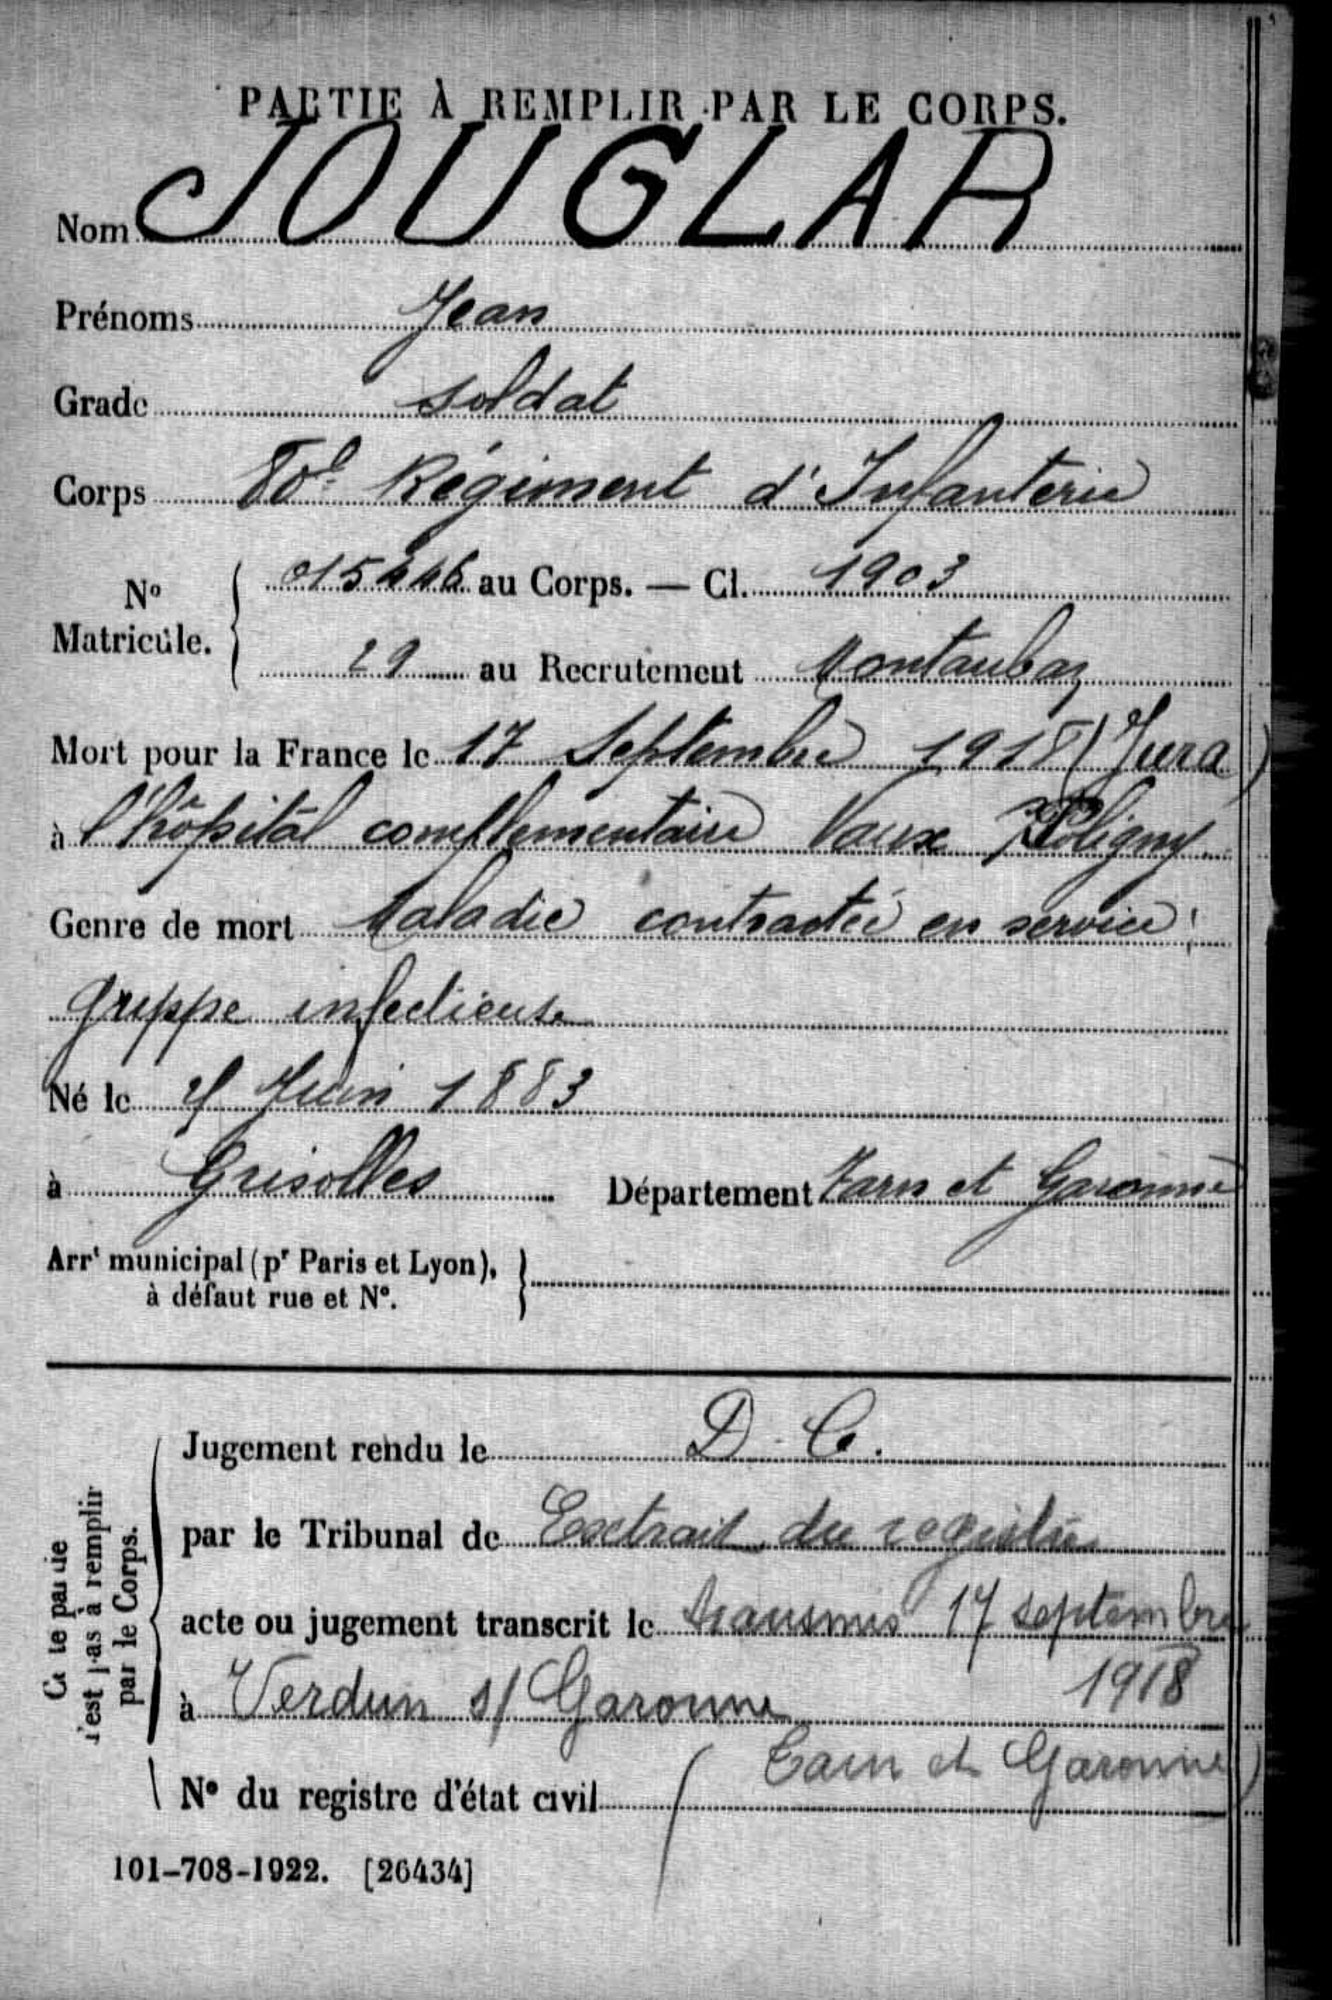 PARTIE À REMPLIR PAR LE CORPS.
Nom JOUGLAR
Prénoms Jean
Grade soldat
Corps 80e Régiment d'Infanterie
No Matricule. au Corps. — Cl. 1903
29 au Recrutement Montauban
Mort pour la France le 17 Septembre 1918 (Jura)
à l'hôpital complémentaire Vaux Poligny
Genre de mort Maladie contractée en service
grippe infectieuse
Né le Juin 1883
à Grisolles Département Tarn et Garonne
Arrt municipal (pr Paris et Lyon),
à défaut rue et No.
Jugement rendu le D. C.
par le Tribunal de Extrait du registre
acte ou jugement transcrit le transmis 17 septembre
1918
à Verdun s/ Garonne
(Tarn et Garonne)
No du registre d'état civil
Ce te partie
n'est pas à remplir
par le Corps.
101-708-1922. [26434]